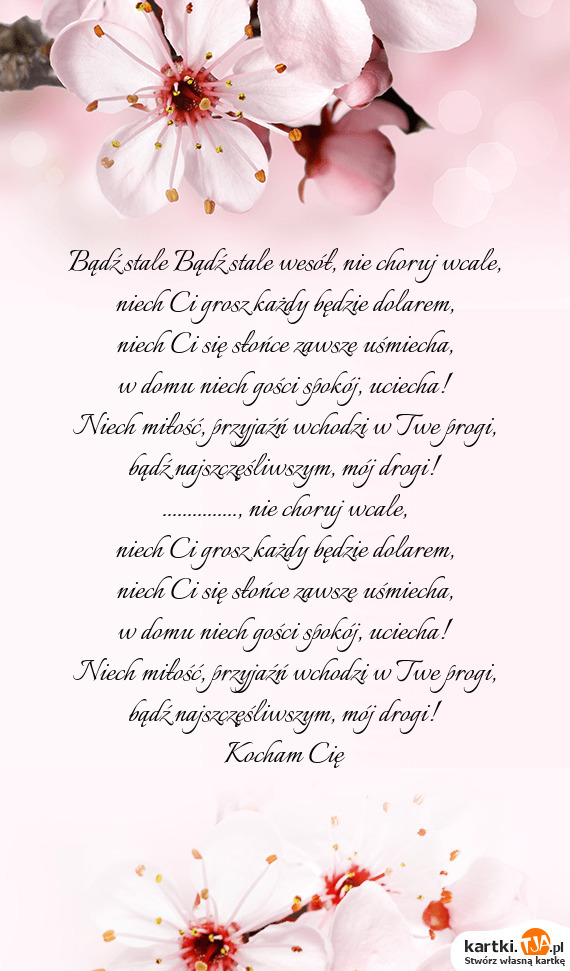 Bądź stale Bądź stale wesół, nie choruj wcale,
niech Ci grosz każdy będzie dolarem,
niech Ci się słońce zawsze uśmiecha,
w domu niech gości spokój, uciecha!
Niech miłość, przyjaźń wchodzi w Twe progi,
bądź najszczęśliwszym, mój drogi!
..............., nie choruj wcale,
niech Ci grosz każdy będzie dolarem,
niech Ci się słońce zawsze uśmiecha,
w domu niech gości spokój, uciecha!
Niech miłość, przyjaźń wchodzi w Twe progi,
bądź najszczęśliwszym, mój drogi!
Kocham Cię
kartki.TJA.pl
Stwórz własną kartkę